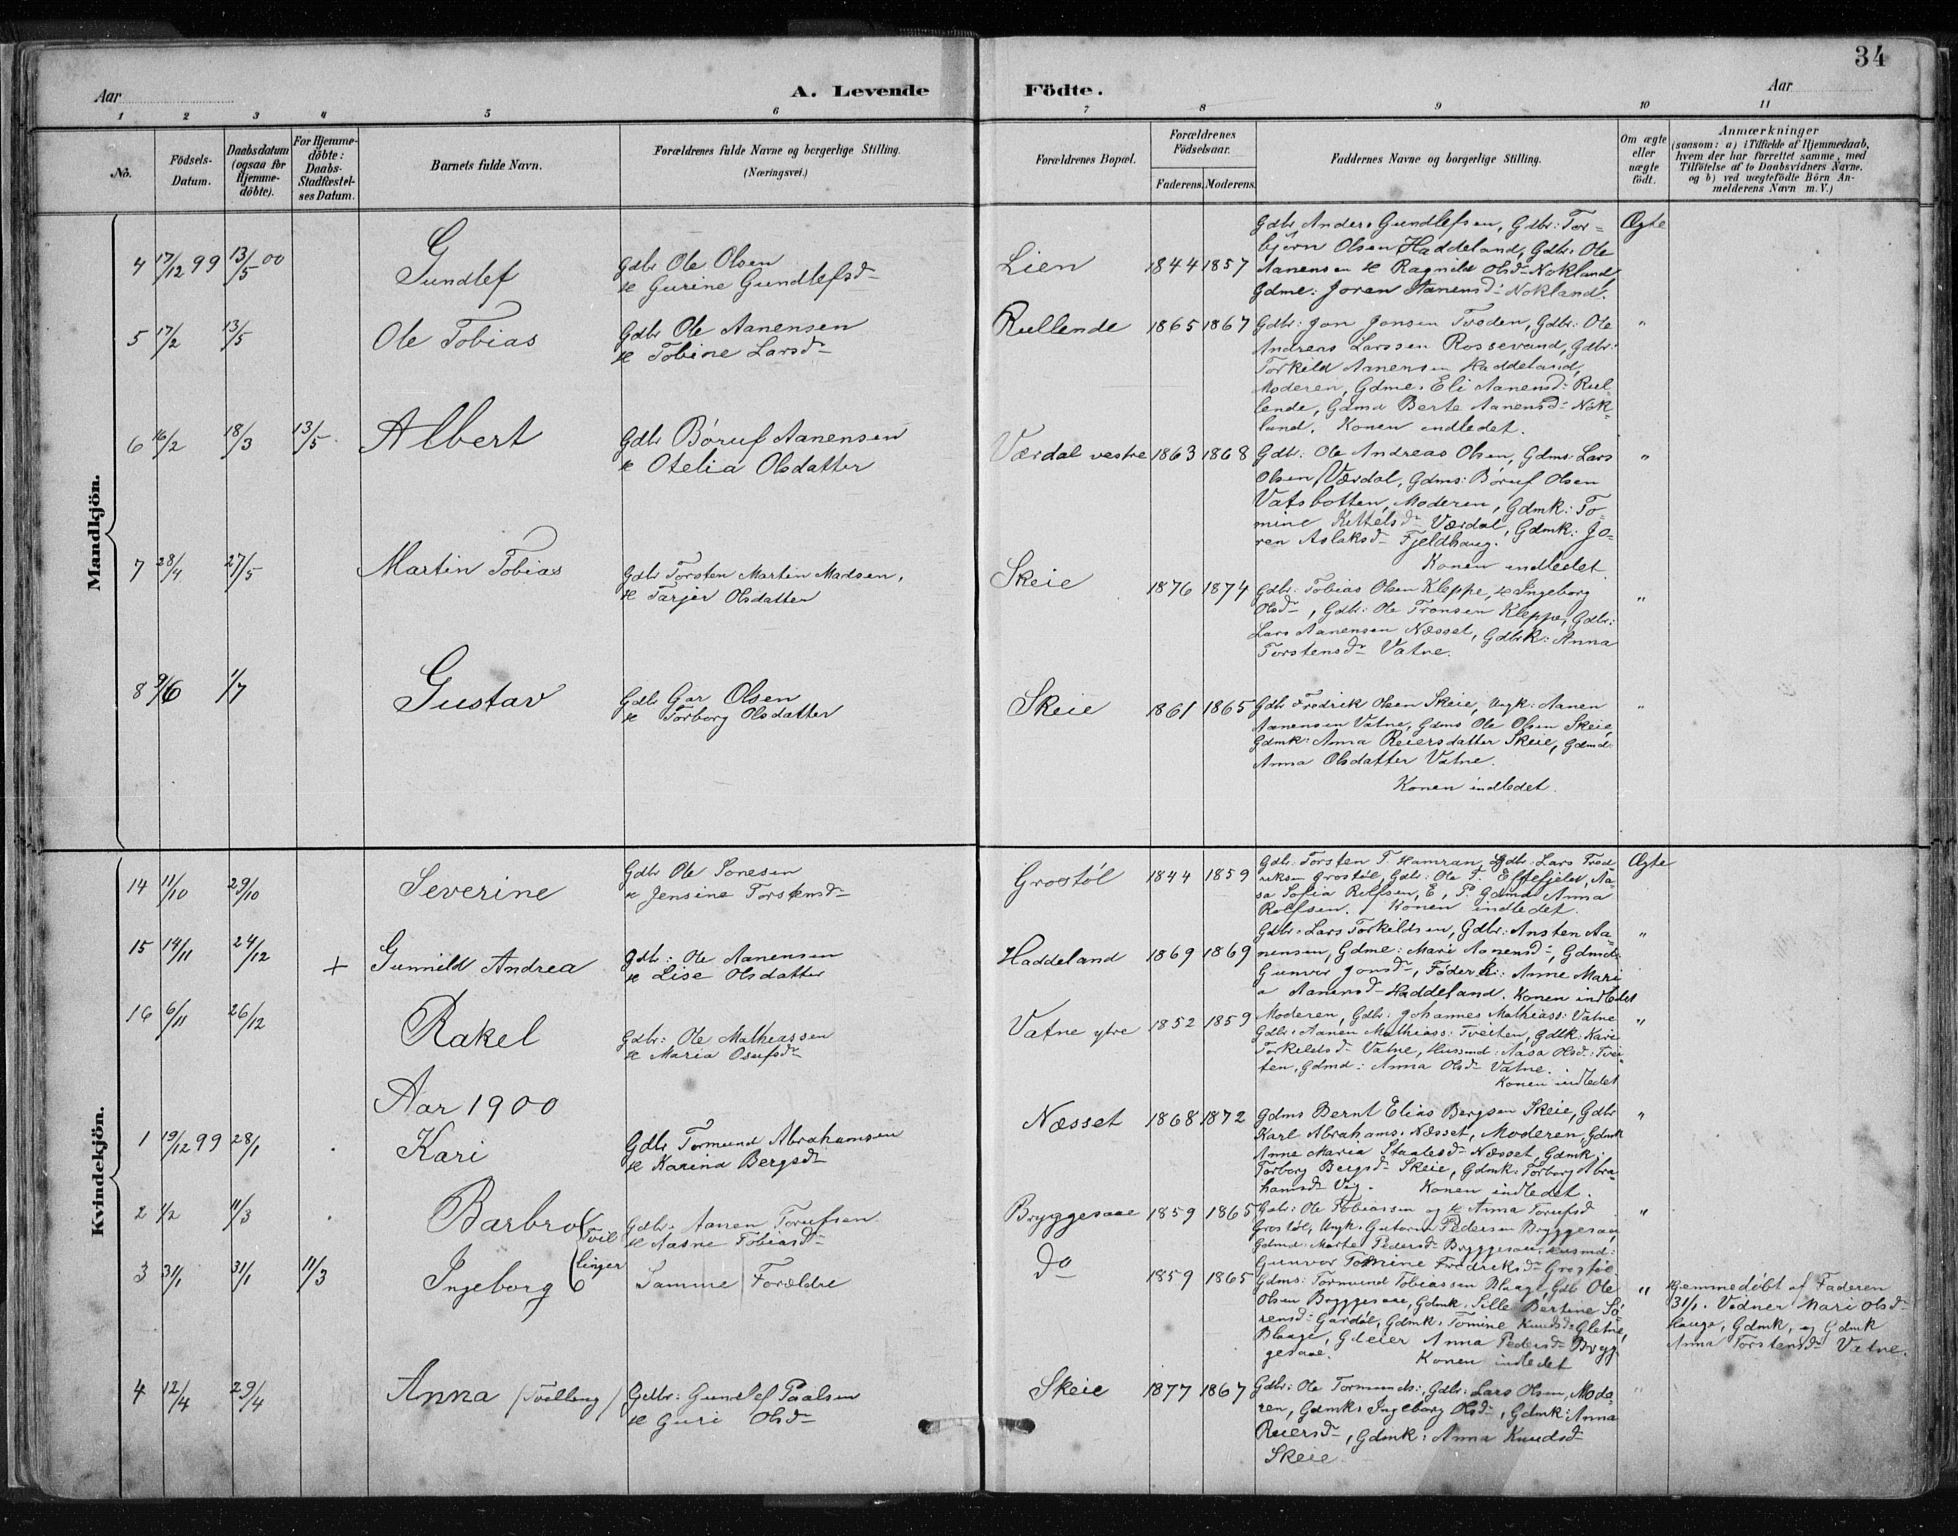 34
Aar
A. Levende
Födte.
Aar
1 2 3 4 5 6 7 8 9 10 11
No.
Födsels-Datum.
Daabsdatum (ogsaa for Hjemme-döbte).
For Hjemme-döbte: Daabs-Stadfæstel-ses Datum.
Barnets fulde Navn.
Forældrenes fulde Navne og borgerlige Stilling.
(Næringsvei.)
Forældrenes Bopæl.
Forældrenes Födselsaar.
Faderens. Moderens.
Faddernes Navne og borgerlige Stilling.
Om ægte eller uægte födt.
Anmærkninger
(saasom: a) i Tilfælde af Hjemmedaab,
hvem der har forrettet samme, med
Tilföielse af to Daabsvidners Navne,
og b) ved uægtefödte Börn An-
melderens Navn m. V.)
Mandkjön.
4 17/12 99 13/5 00 Gundlef
Gdbr Ole Olsen
& Gurine Gundlefsd
Lien 1844 1857
Gdbr. Anders Gundlefsen, Gdbr: Tor-
björn Olsen Haddeland, Gdbr. Ole
Aanensen & Ragnild Olsd Nokland,
Gdme: Joren Aanensd Nokland.
Ægte
5 17/2 13/5 Ole Tobias
Gdbr Ole Aanensen
& Tobine Larsd
Rullende 1865 1867
Gdbr: Jon Jonsen Troden, Gdbr: Ole
Andreas Larssen Rossevand, Gdbr:
Torkild Aanensen Haddeland,
Moderen, Gdme. Eli Aanensd Rul-
lende, Gdmd Berte Aanensd Nok-
land. Konen indledet.
"
6 16/2 18/3 13/5 Albert
Gdbr Børuf Aanensen
& Otelia Olsdatter
Værdal vestre 1863 1868
Gdbr: Ole Andreas Olsen, Gdms: Lars
Olsen Værdal, Gdms: Børuf Olsen
Vatsbotten, Moderen, Gdmk: To-
mine Kittelsd Værdal, Gdmk: Jo-
ren Aslaksd Fjeldhaug.
Konen indledet
"
7 28/4 27/5 Martin Tobias
Gdbr Torsten Martin Madsen,
& Tarjer Olsdatter
Skeie 1876 1874
Gdbr: Tobias Olsen Kleppe, & Ingeborg
Olsd, Gdbr: Ole Tronsen Kleppe, Gdbr:
Lars Aanensen Næsset, Gdbrk: Anna
Torstensd Vatne.
"
8 9/6 1/7 Gustav
Gdbr Gar Olsen
& Torborg Olsdatter
Skeie 1861 1865
Gdbr Fredrik Olsen Skeie, Ungk: Aanen
Aanensen Vatne, Gdms Ole Olsen Skeie,
Gdmk: Anna Reiersdatter Skeie, Gdmd:
Anna Olsdatter Vatne.
Konen indledet.
"
Kvindekjön.
14 11/10 29/10 Severine
Gdbr Ole Sonesen
& Jensine Torstensd
Grostöl 1844 1859
Gdbr: Torsten T. Hamran, Gdbr: Lars Fred-
riksen Grostøl, Gdbr: Ole T. Eftefjeld, Aa-
sa Sofia Rolfsen, E, P Gdmd Anna
Rolfsen. Konen indledet.
Ægte
15 14/11 24/12 + Gunnild Andrea
Gdb: Ole Aanensen
& Lise Olsdatter
Haddeland 1869 1869
Gdbr. Lars Torkildsen, Gdbr: Ansten Aa-
nensen, Gdme: Mari Aanensd, Gdmd:
Gunvor Jonsd, Föderk: Anne Mari-
a Aanensd Haddeland. Konen indledet
"
16 6/11 26/12 Rakel
Gdbr: Ole Mathiassen
& Maria Osufsd
Vatne ytre 1852 1859
Moderen, Gdbr: Johannes Mathiass: Vatne
Gdbr. Aanen Mathiass: Tveiten, Gdbk: Kari
Torkildsd Vatne, Husmd: Aasa Olsd: Tvei-
ten, Gdmd: Anna Olsd Vatne.
Konen indledet
"
Aar 1900
1 19/12 99 28/1 Kari
Gdbr Tormund Abrahamsen
& Karine Bergsd
Næsset 1868 1872
Gdms Bernt Elias Bergsen Skeie, Gdbr
Karl Abrahams. Næsset, Moderen, Gdmk
Anne Maria Staalesd Næsset, Gdmk:
Torborg Bergsd Skeie, Gdmk: Torborg Abra-
hamsd Veg. Konen indledet.
"
2 1/2 11/3 Barbro
Tvil
linger
Gdbr. Aanen Torufsen
& Aasne Tobiasd
Bryggesaae 1859 1865
Gdbr: Ole Tobiassen og & Anna Torufsd
Grostöl, Ungk. Gutorm Pedersen Bryggesaae,
Gdmd: Marte Pedersd Bryggesaae, Husmd:
Gunvor Tomine Fredriksd Grostöl
"
3 31/1 31/1 11/3 Ingeborg
Samme Forældre
Do 1859 1865
Gdms: Tormund Tobiassen Blaage, Gdb Ole
Olsen Bryggesaae, Gdmk. Sille Bertine Sö-
rensd Gardöl, Gdmk. Tomine Knudsd Gletne,
Blaage, Gdeier Anna Pedersd Bryg-
gesaae. Konen indledet
"
Hjemmedøbt af Faderen
31/1. Vidner Mari Olsd
Hauge, Gdmk, og Gdmk
Anna Torstensd Vatne.
4 12/4 29/4 Anna (Tvilling)
Gdbr: Gundlef Paalsen
& Guri Olsd
Skeie 1877 1867
Gdbr: Ole Tormunds:, Gdbr: Lars Olsen, Mode-
ren, Gdmk: Ingeborg Olsd, Gdmk: Anna
Reiersd, Gdmk: Anna Knudsd
Skeie.
"